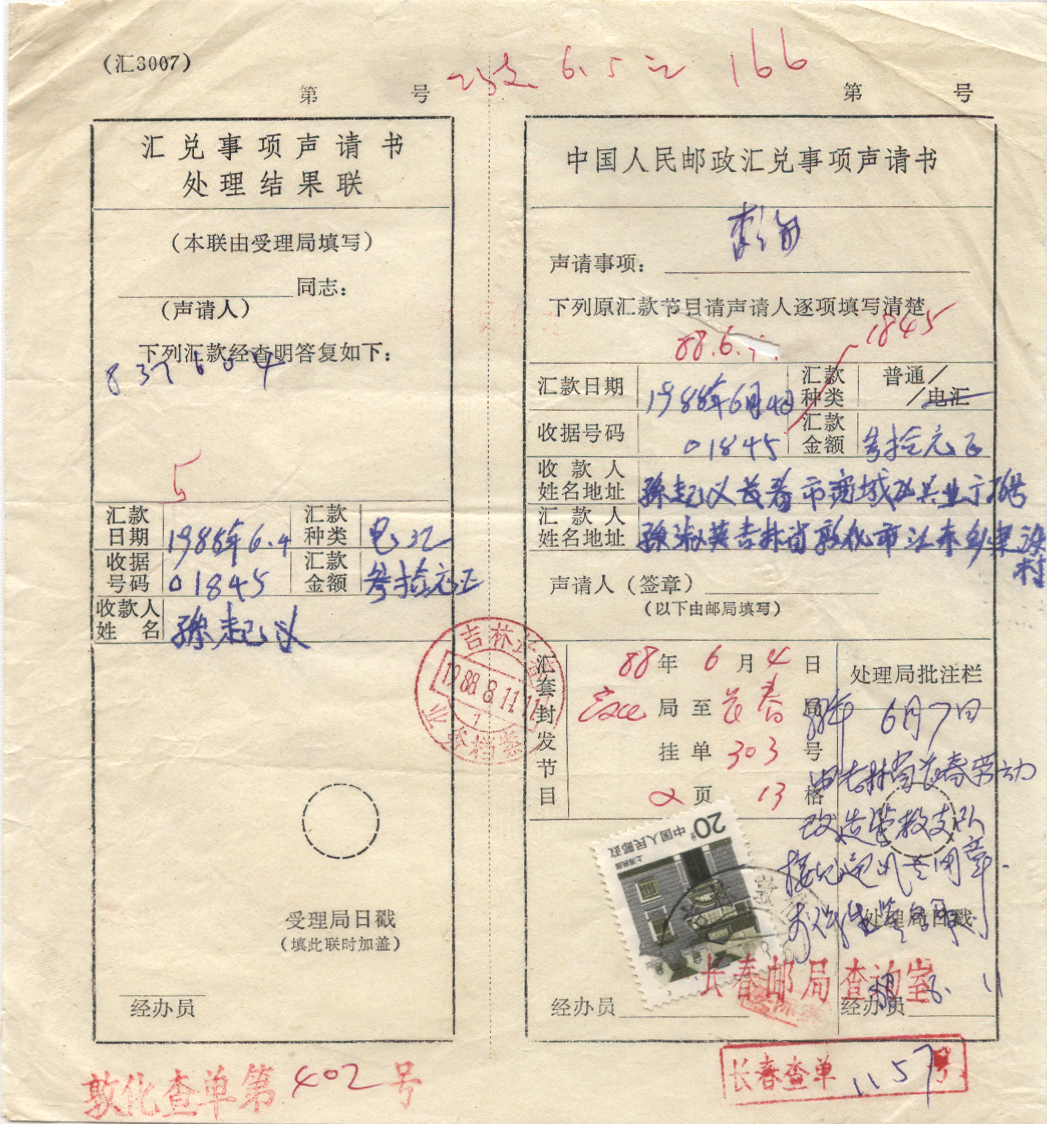 (汇3007)
6.5 166
第 号
汇兑事项声请书
处理结果联
(本联由受理局填写)
同志：
(声请人)
下列汇款经查明答复如下：
837604
5
汇款日期 1988年6.4 汇款种类 电汇
收据号码 01845 汇款金额 叁拾元正
收款人姓名 孙起义
受理局日戳
(填此联时加盖)
经办员
敦化查单第402号
第 号
中国人民邮政汇兑事项声请书
声请事项：
下列原汇款节目请声请人逐项填写清楚
88.6.
1845
汇款日期 1988年6月4日 汇款种类 普通/电汇
收据号码 01845 汇款金额 叁拾元正
收款人姓名地址 孙起义长春市
汇款人姓名地址 孙淑英吉林省敦化市江东乡
村
声请人(签章)
(以下由邮局填写)
汇套封发节目
88年6月4日
局至长春局
挂单303号
2页13格
处理局批注栏
88年6月7日
由吉林省长春劳动
改造管教支队
处理局日戳
经办员
经办员
吉林长春
1988.8.11.11
业务档案
20分
中国人民邮政
上海民居
长春邮局查询室
长春查单1157号